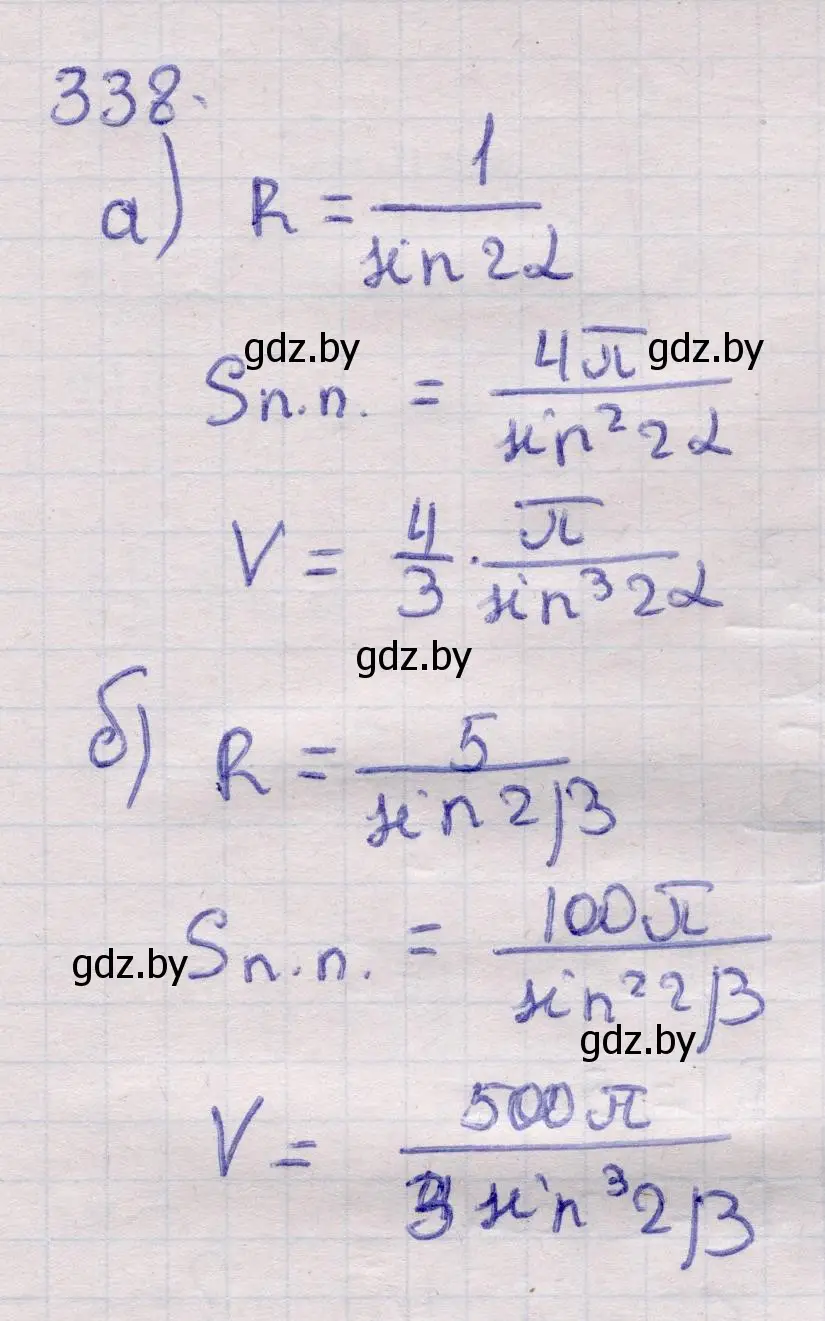 338.
а) R = 1 / sin 2α
gdz.by gdz.by
Sп.п. = 4π / sin² 2α
V = 4/3 · π / sin³ 2α
gdz.by
б) R = 5 / sin 2β
gdz.by Sп.п. = 100π / sin² 2β
gdz.by
V = 500π / 3 sin³ 2β